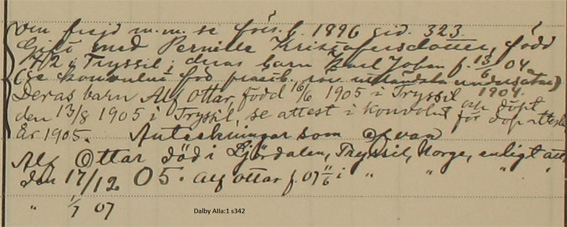 Om frejd m.m. se förs.b. 1896 sid. 323.
Gift med Pernilla Kristofersdotter, född
7/2 i Trysil; deras barn Karl Johan f. 13/6 04
(Se konvolut för utländska undersåtar)
Deras barn Alf Ottar, född 16/6 1905 i Trysil, döpt
den 13/8 1905 i Trysil, se attest i konvolut för dopattester
år 1905. Anteckningar som ofvan
Alf Ottar död i Ljördalen, Trysil, Norge, enligt att.
den 17/12 05. Alf Ottar f. 07 i " " "
" 1/7 07
Dalby AIIa:1 s342